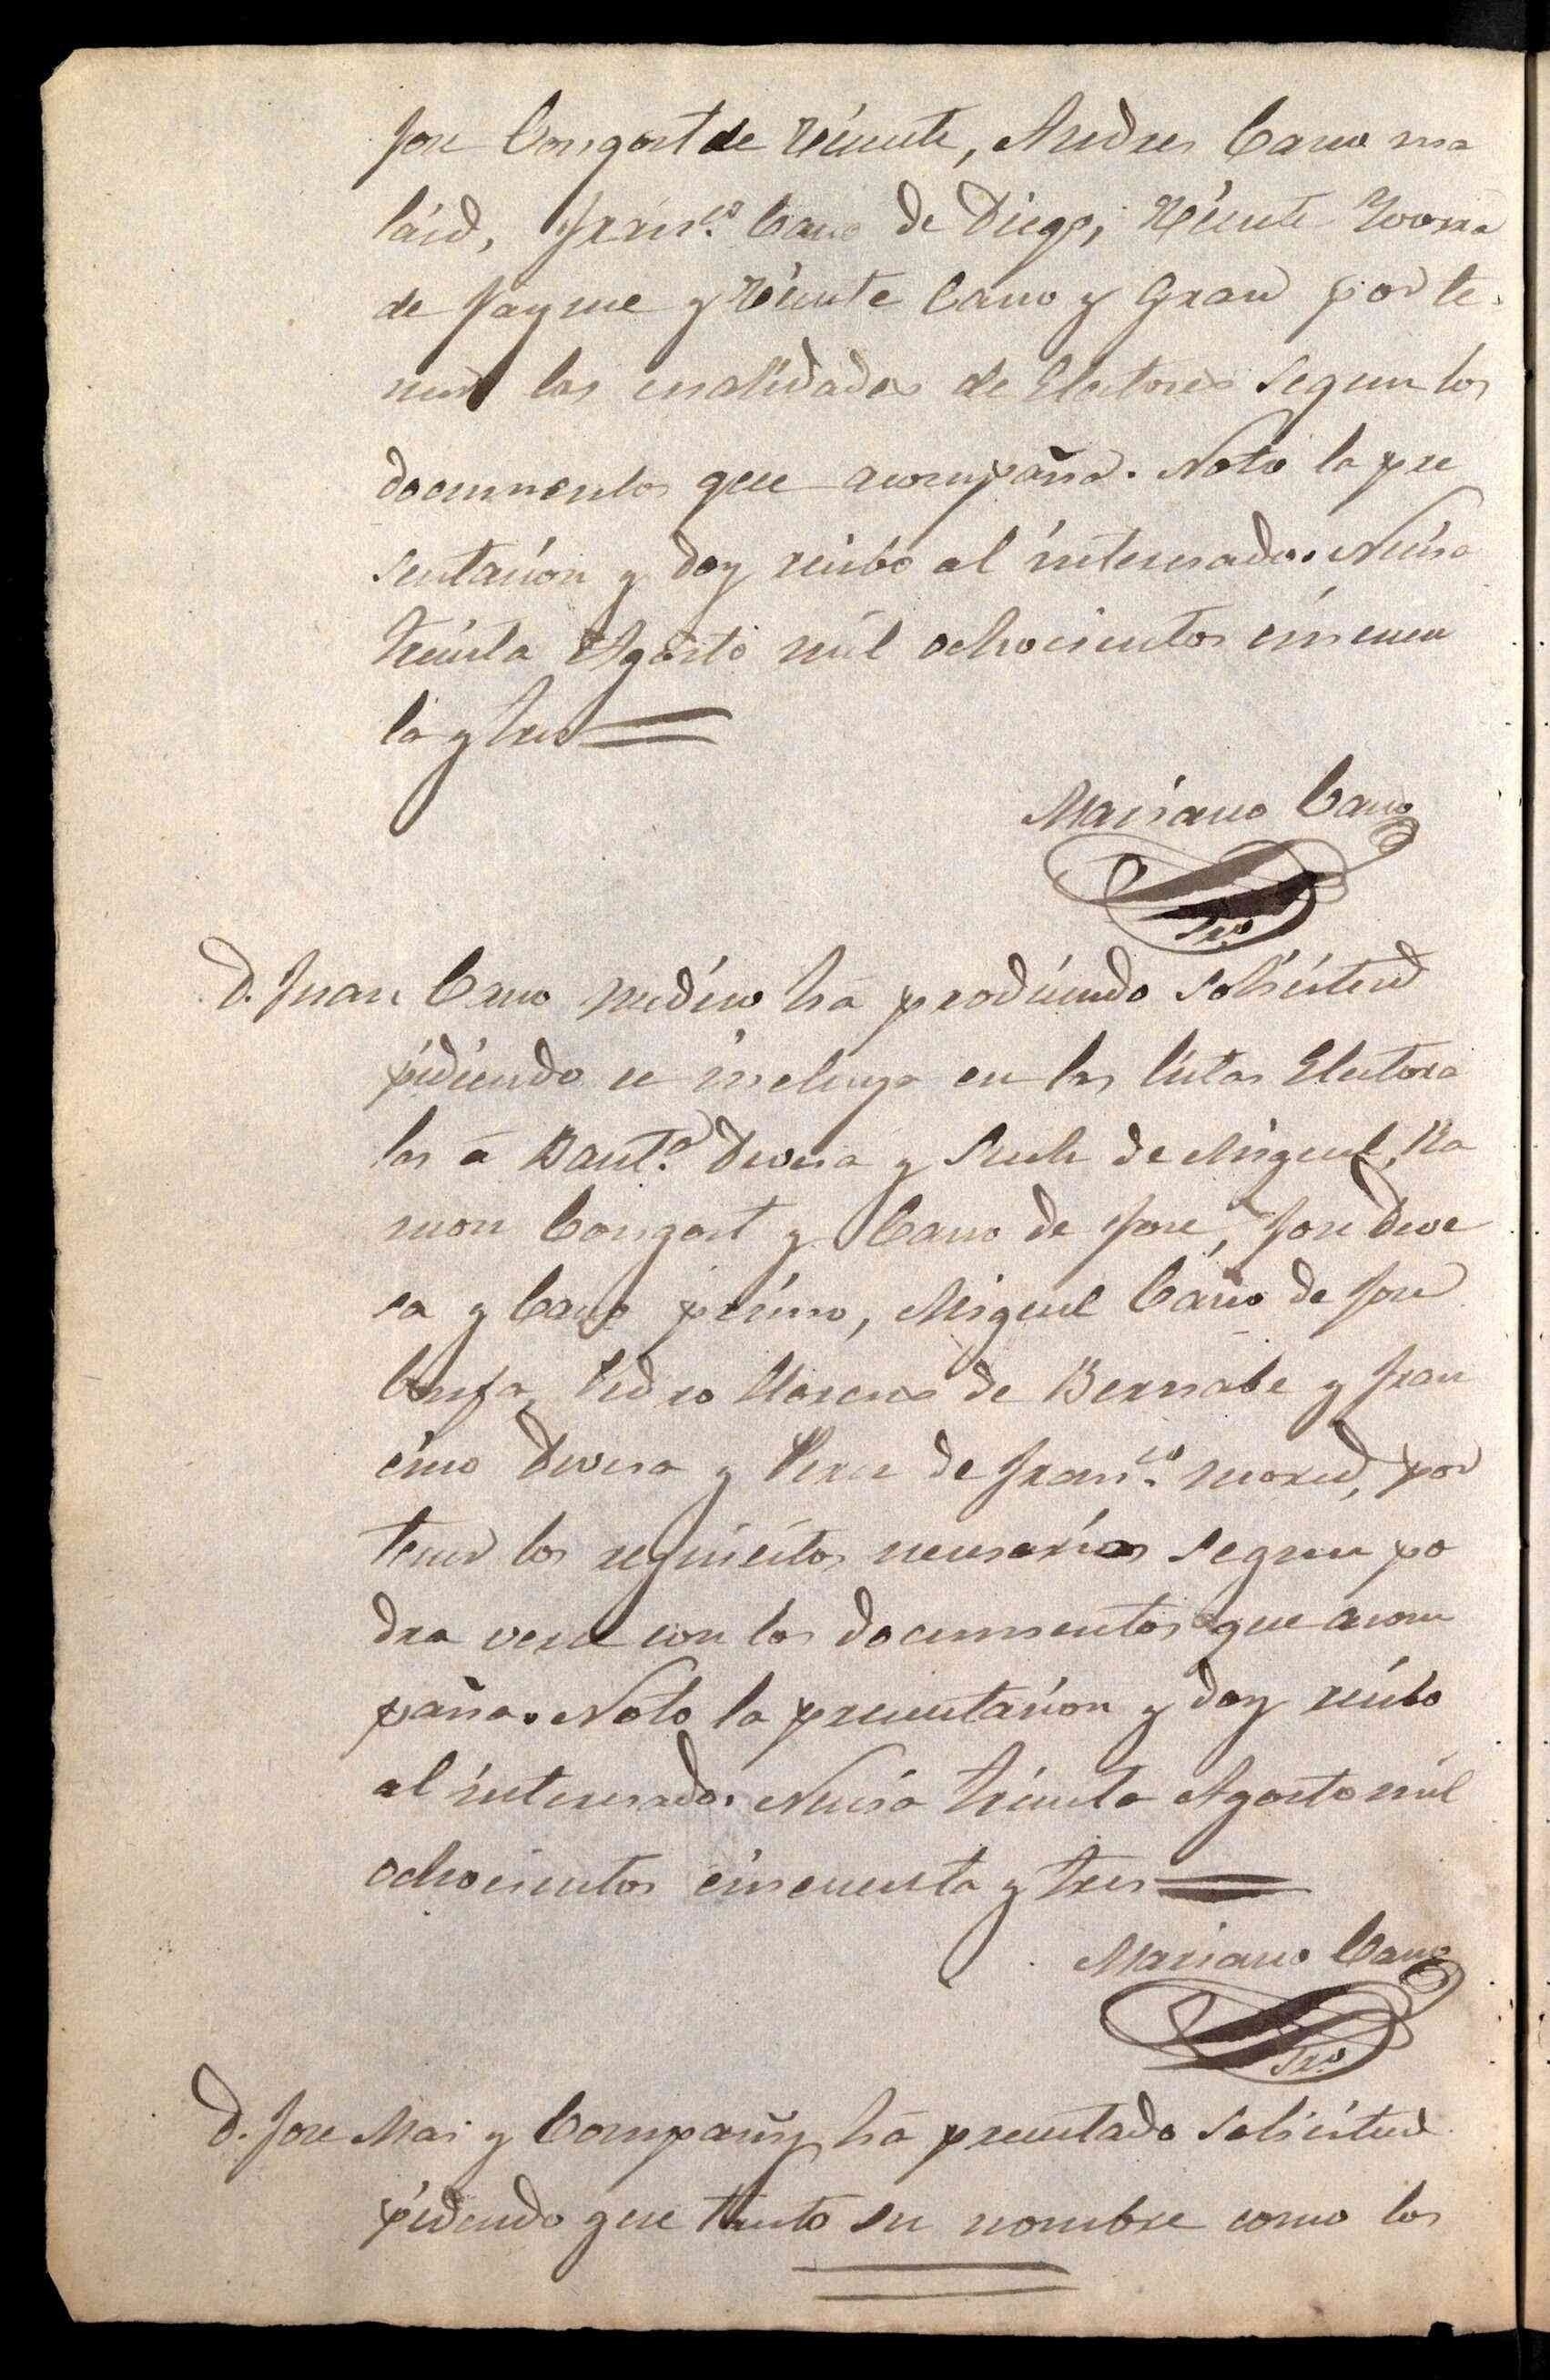 Jose Congost de Vicente, Andres Cano ma
laid, Fran.co Cano de Diego, Vicente
de Jayme y Vicente Cano y Grau por te
ner las cualidades de Electores segun los
documentos que acompaña. Noto la pre
sentacion y doy recibo al interesado. Nucia
treinta Agosto mil ochocientos cincuen
ta y tres
Mariano Cano
Sr.o
D. Juan Cano medico há producido solicitud
pidiendo se incluya en las listas Electora
les á Baut.a Devesa y de Miguel, Ra
mon Congost y Cano de Jose, Jose Deve
sa y Cano primo, Miguel Cano de Jose
Pedro Llorens de Bernabe y Fran
cisco Devesa y Perez de Fran.co por
tener los requisitos necesarios segun po
dra verse con los documentos que acom
paña. Noto la presentacion y doy recibo
al interesado. Nucia treinta Agosto mil
ochocientos cincuenta y tres
Mariano Cano
Sr.o
D. Jose Mas y Compañy há presentado solicitud
pidendo que tanto su nombre como los